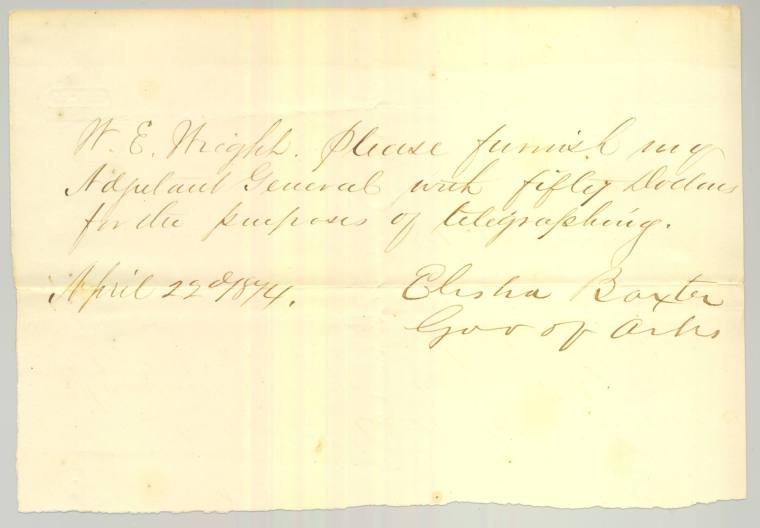 W. E. Wright. Please furnish my
Adjutant General with fifty Dollars
for the purposes of telegraphing.
April 22d 1874.
Elisha Baxter
Gov of Arks